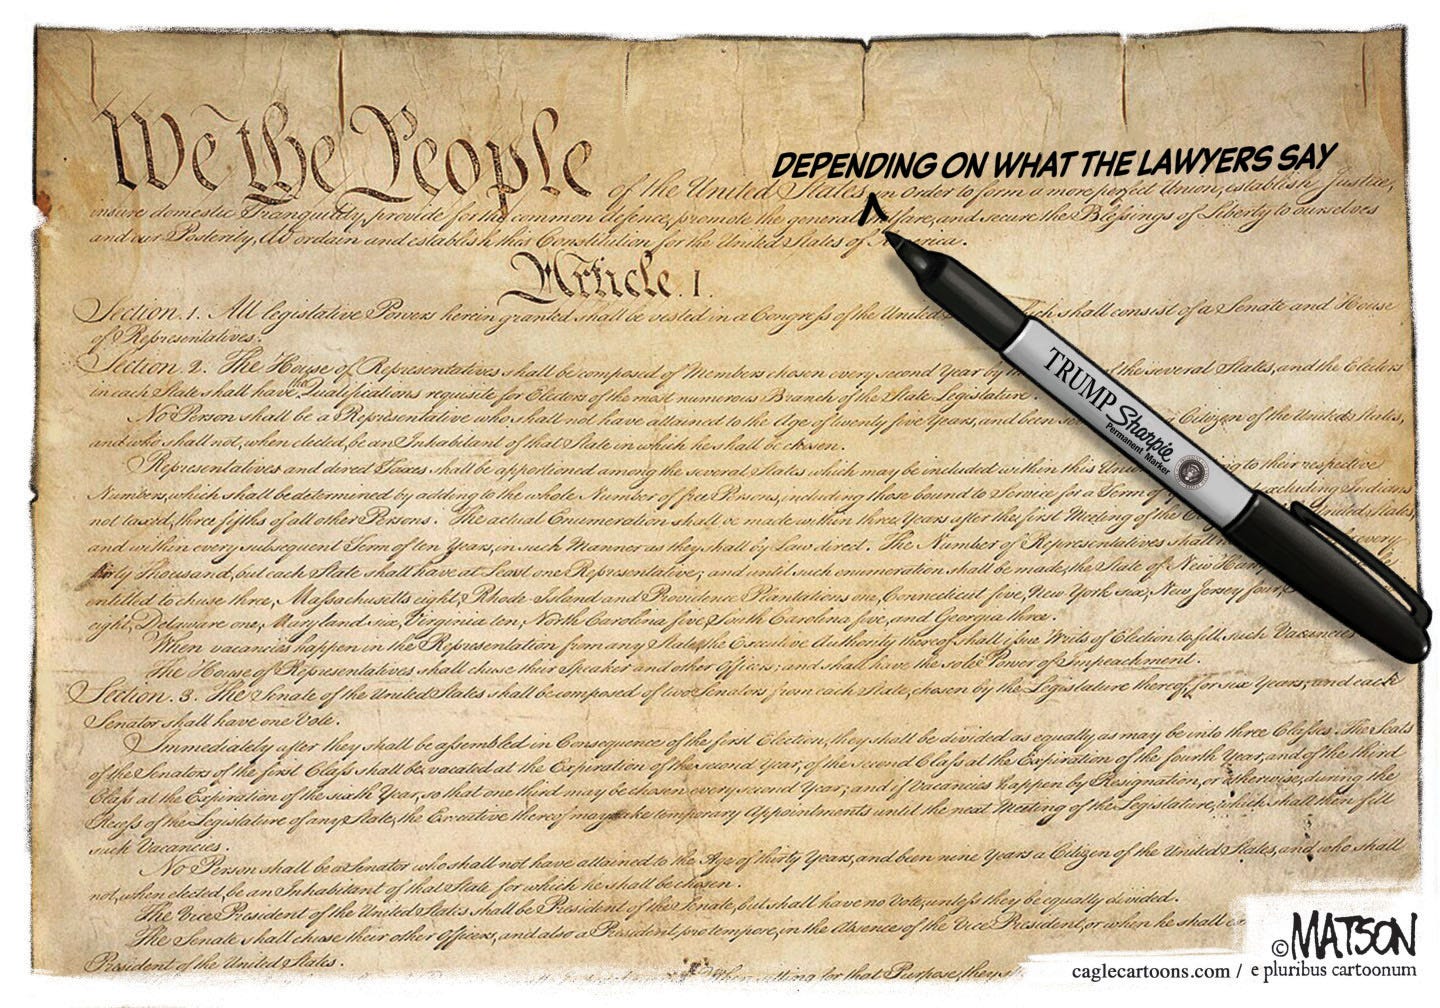 DEPENDING ON WHAT THE LAWYERS SAY
We the People of the United States in Order to form a more perfect Union, establish Justice,
insure domestic Tranquility, provide for the common defence, promote the general Welfare, and secure the Blessings of Liberty to ourselves
and our Posterity, do ordain and establish this Constitution for the United States of America.
Article. I.
Section. 1. All legislative Powers herein granted shall be vested in a Congress of the United which shall consist of a Senate and House
of Representatives.
Section. 2. The House of Representatives shall be composed of Members chosen every second Year by the several States, and the Electors
in each State shall have the Qualifications requisite for Electors of the most numerous Branch of the State Legislature.
No Person shall be a Representative who shall not have attained to the Age of twenty five Years, and been Citizen of the United States,
and who shall not, when elected, be an Inhabitant of that State in which he shall be chosen.
Representatives and direct Taxes shall be apportioned among the several States which may be included within this to their respective
Numbers, which shall be determined by adding to the whole Number of free Persons, including those bound to Service for a Term of excluding Indians
not taxed, three fifths of all other Persons. The actual Enumeration shall be made within three Years after the first Meeting of the United States,
and within every subsequent Term of ten Years, in such Manner as they shall by Law direct. The Number of Representatives shall every
thirty Thousand, but each State shall have at Least one Representative; and until such enumeration shall be made, the State of New
entitled to chuse three, Massachusetts eight, Rhode Island and Providence Plantations one, Connecticut five, New York six, New Jersey four,
eight, Delaware one, Maryland six, Virginia ten, North Carolina five, South Carolina five, and Georgia three.
When vacancies happen in the Representation from any State, the Executive Authority thereof shall issue Writs of Election to fill such Vacancies
The House of Representatives shall chuse their Speaker and other Officers; and shall have the sole Power of Impeachment.
Section. 3. The Senate of the United States shall be composed of two Senators from each State, chosen by the Legislature thereof, for six Years; and each
Senator shall have one Vote.
Immediately after they shall be assembled in Consequence of the first Election, they shall be divided as equally as may be into three Classes. The Seats
of the Senators of the first Class shall be vacated at the Expiration of the second Year, of the second Class at the Expiration of the fourth Year, and of the third
Class at the Expiration of the sixth Year, so that one third may be chosen every second Year; and if Vacancies happen by Resignation, or otherwise, during the
Recess of the Legislature of any State, the Executive thereof may take temporary Appointments until the next Meeting of the Legislature, which shall then fill
such Vacancies.
No Person shall be a Senator who shall not have attained to the Age of thirty Years, and been nine Years a Citizen of the United States, and who shall
not, when elected, be an Inhabitant of that State for which he shall be chosen.
The Vice President of the United States shall be President of the Senate, but shall have no Vote, unless they be equally divided.
The Senate shall chuse their other Officers, and also a President pro tempore, in the Absence of the Vice President, or when he shall
President of the United States.
When sitting for that Purpose, they
TRUMP Sharpie
Permanent Marker
© MATSON
caglecartoons.com / e pluribus cartoonum